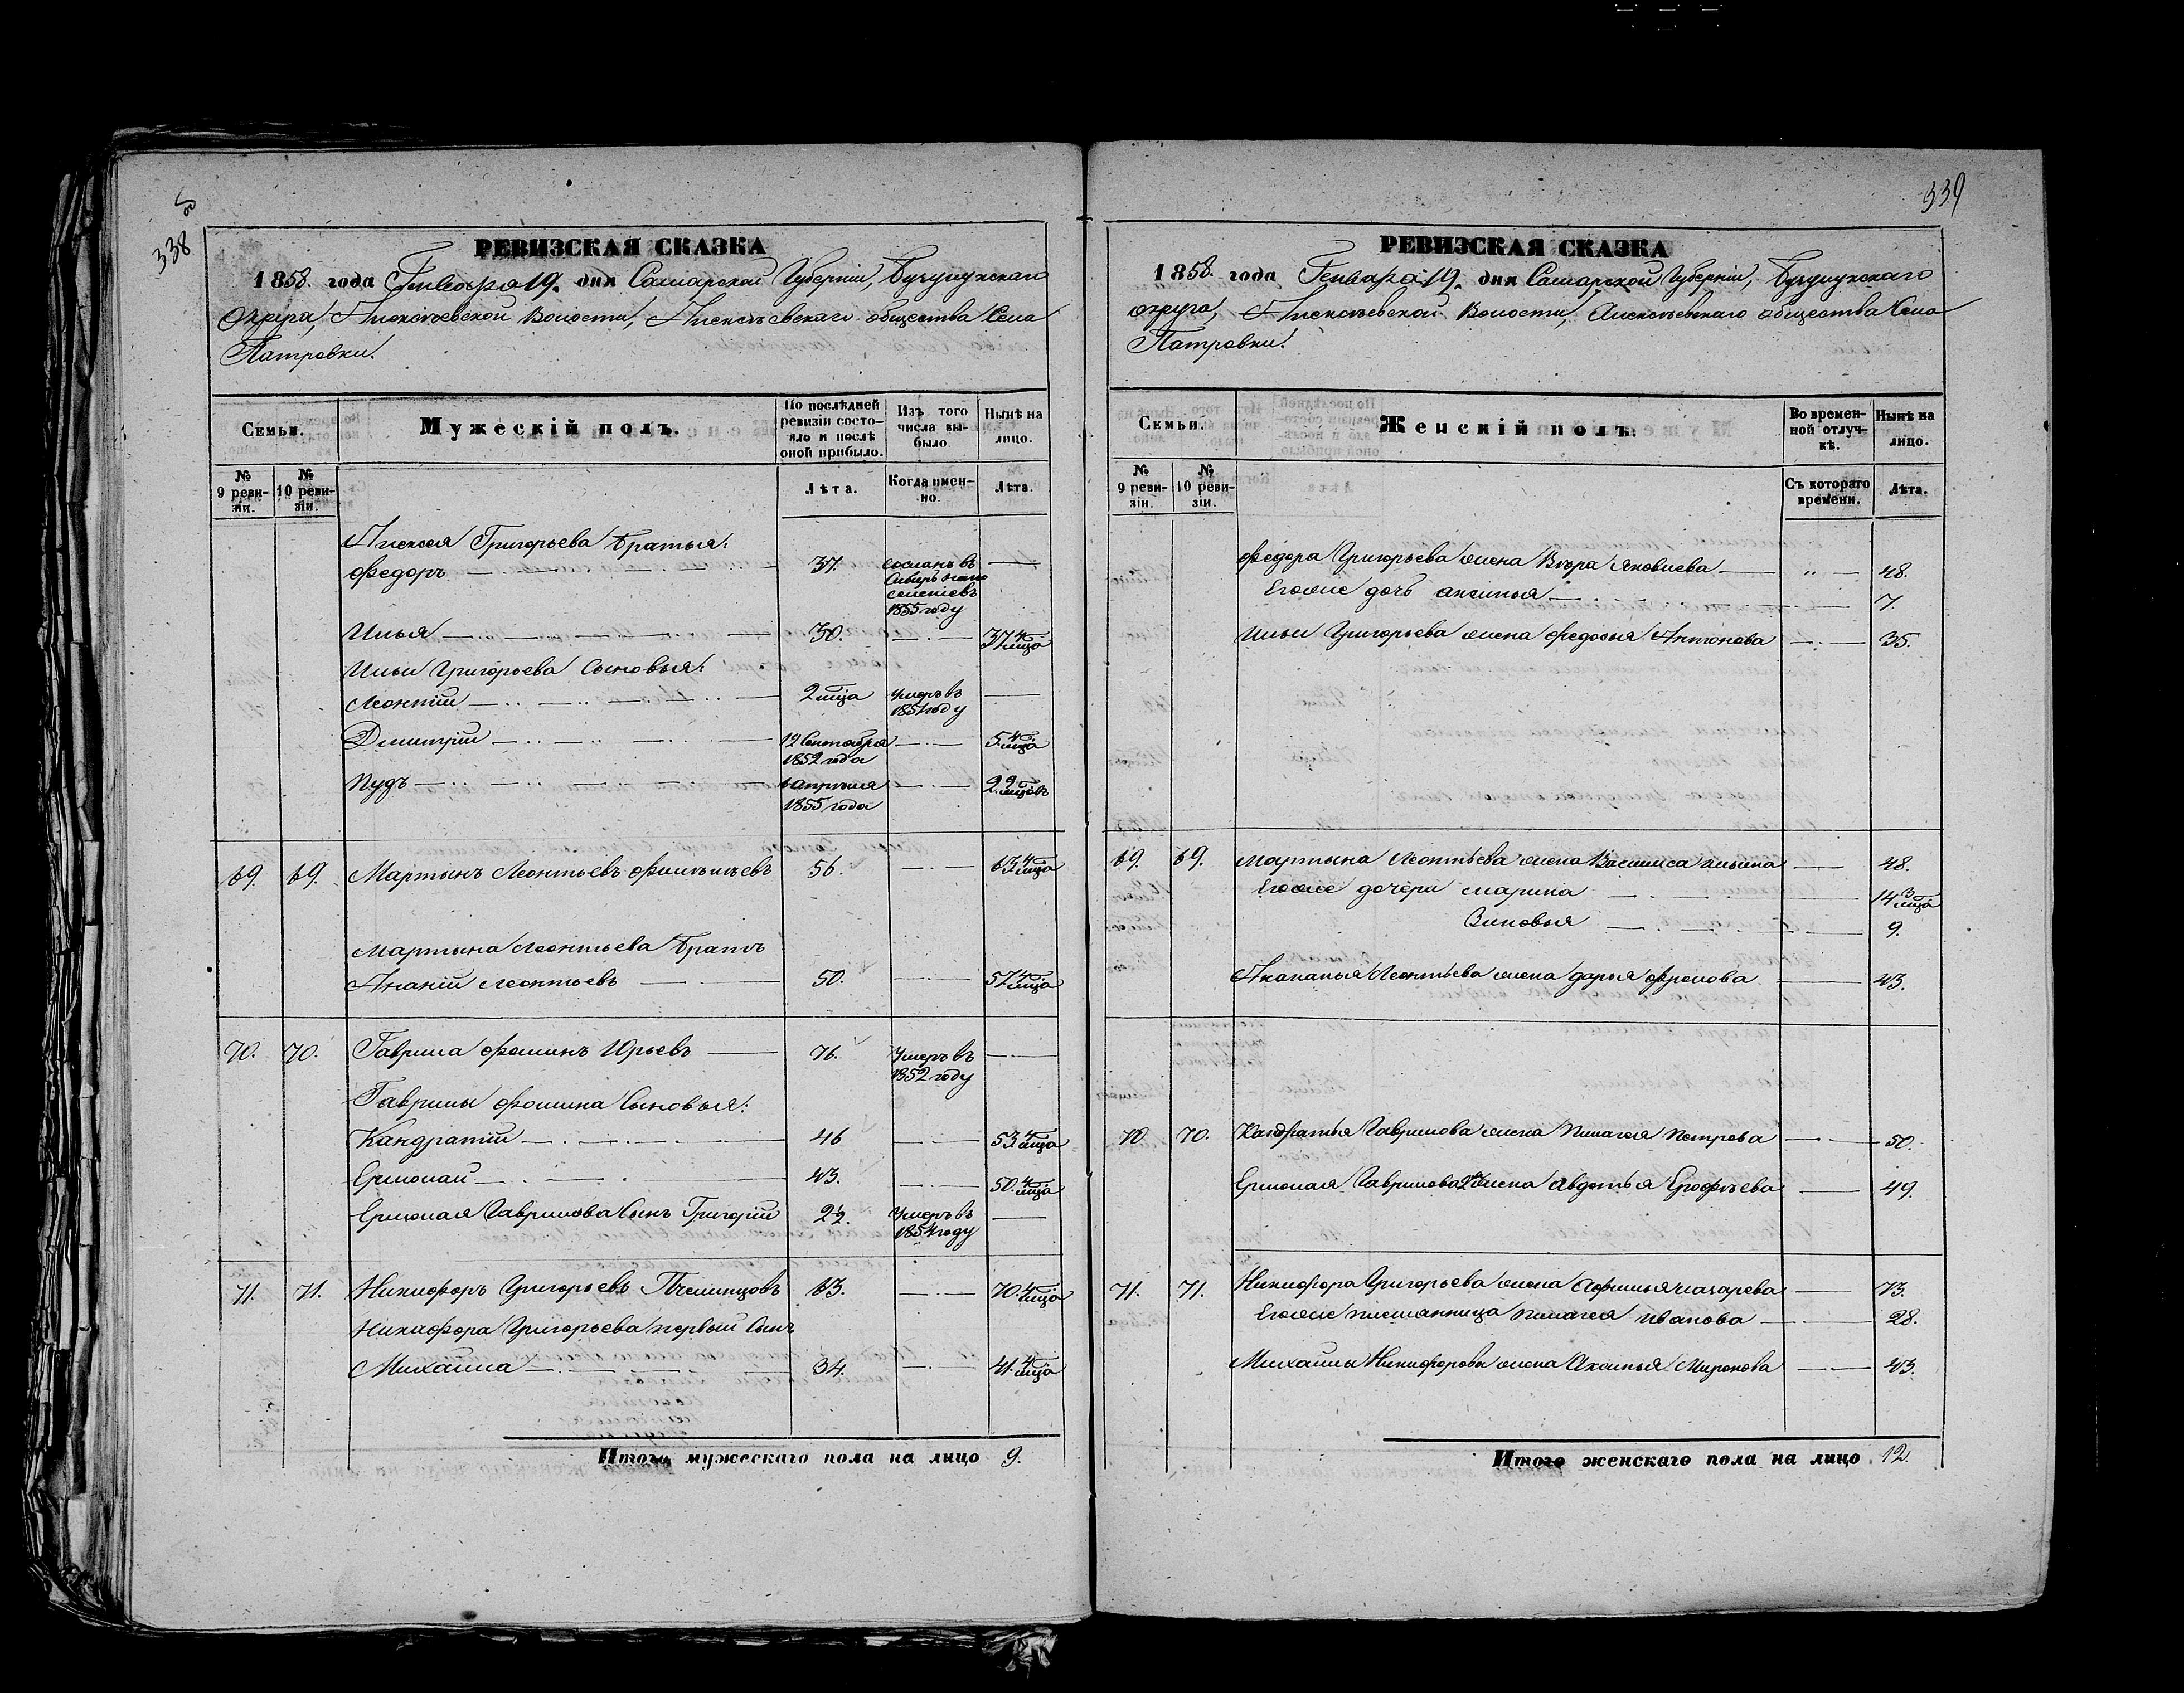 338 об
РЕВИЗСКАЯ СКАЗКА
1858. года Генваря 19. дня Самарской Губерніи, Бузулукскаго
Округа, Алексѣевской Волости, Алексѣевскаго общества Села
Патровки.
Семьи.
Мужескій полъ.
По послѣдней ревизіи состо-яло и послѣ оной прибыло.
Изъ того числа вы-было.
Нынѣ на лицо.
№ 9 реви-зіи.
№ 10 реви-зіи.
Лѣта.
Когда имен-но.
Лѣта.
Алексея Григорьева братья:
Федоръ 37. сосланъ въ Сибирь на поселеніе въ 1855 году
Илья 30. 37 4/мца
Ильи Григорьева Сыновья:
Леонтій 2 мца умеръ въ 1851 году
Дмитрій 12 Сентября 1852 года 5. 4/мца
Пудъ 6 апрѣля 1855 года 2. 9/мцовъ
69. 69. Мартынъ Леонтьевъ 56. 63. 4/мца
Мартына Леонтьева братъ
Ананій Леонтьевъ 50. 57 4/мца
70. 70. Гаврила Фоминъ Юрьевъ 76. Умеръ въ 1852 году
Гаврилы Фомина Сыновья:
Кандратій 46 53 4/мца
Ермолай 43. 50. 4/мца
Ермолая Гаврилова Сынъ Григорій 2½. Умеръ въ 1854 году
71. 71. Никифоръ Григорьевъ Пчелинцовъ 63. 70. 4/мца
Никифора Григорьева первый Сынъ
Михайла 34. 41. 4/мца
Итого мужескаго пола на лицо 9.
339
РЕВИЗСКАЯ СКАЗКА
1858. года Генваря 19. дня Самарской Губерніи, Бузулукскаго
округа, Алексѣевской Волости, Алексѣевскаго общества Села
Патровки.
Семьи.
Женскій полъ.
Во времен-ной отлуч-кѣ.
Нынѣ на лицо.
№ 9 реви-зіи.
№ 10 реви-зіи.
Съ котораго времени.
Лѣта.
Федора Григорьева жена Вѣра Яковлева " 48.
Егоже дочь аксинья 7.
Ильи Григорьева жена Федосья Антонова 35.
69. 69. Мартына Леонтьева жена Василиса ильина 48.
Егоже дочери марина 14 3/мца
Зиновья 9.
Ананья Леонтьева жена дарья фролова 43.
70. 70. Кандратья Гаврилова жена пилагея петрова 50.
Ермолая Гаврилова 2я жена Авдотья Ерофѣева 49.
71. 71. Никифора Григорьева жена Афимья 73.
Егоже племянница пилагея иванова 28.
Михайлы Никифорова жена Аксинья Миронова 43.
Итого женскаго пола на лицо 12.